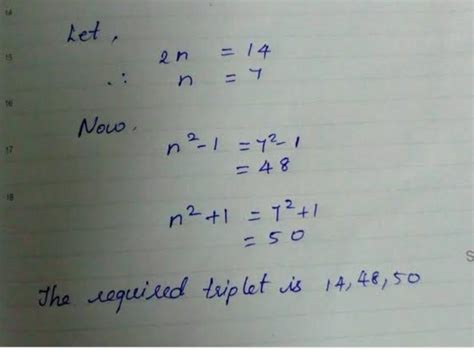 14
Let,
15
2n = 14
∴ n = 7
16
Now,
17
n²-1 = 7²-1
= 48
18
n²+1 = 7²+1
= 50
S
The required triplet is 14, 48, 50